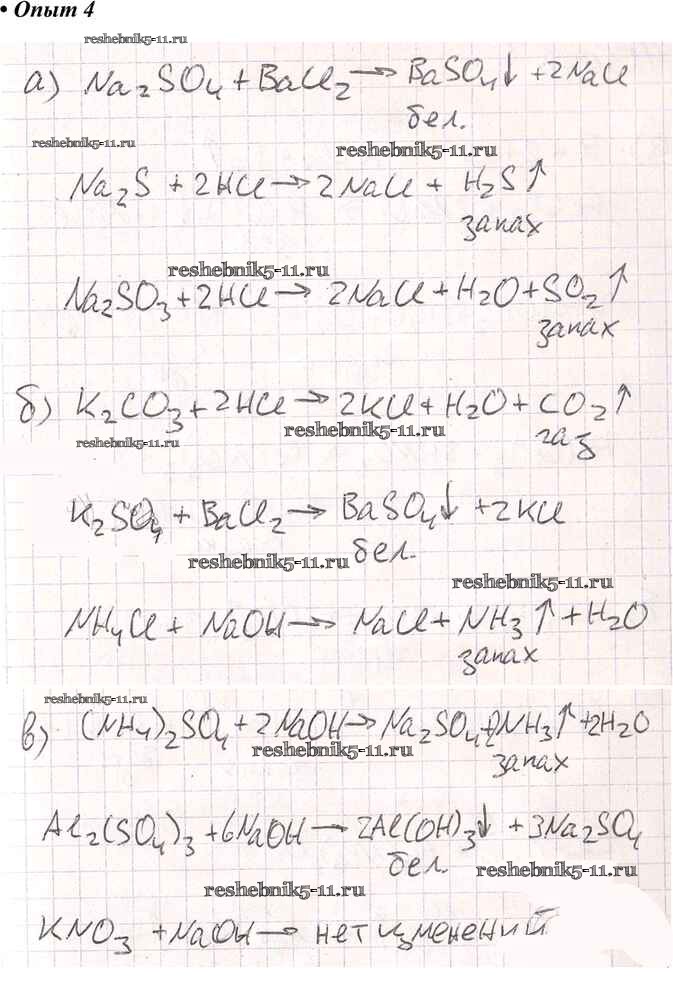 • Опыт 4
reshebnik5-11.ru
а) Na₂SO₄ + BaCl₂ → BaSO₄↓ + 2NaCl
бел.
reshebnik5-11.ru
reshebnik5-11.ru
Na₂S + 2HCl → 2NaCl + H₂S↑
запах
reshebnik5-11.ru
Na₂SO₃ + 2HCl → 2NaCl + H₂O + SO₂↑
запах
б) K₂CO₃ + 2HCl → 2KCl + H₂O + CO₂↑
reshebnik5-11.ru
газ
reshebnik5-11.ru
K₂SO₄ + BaCl₂ → BaSO₄↓ + 2KCl
бел.
reshebnik5-11.ru
reshebnik5-11.ru
NH₄Cl + NaOH → NaCl + NH₃↑ + H₂O
запах
reshebnik5-11.ru
в) (NH₄)₂SO₄ + 2NaOH → Na₂SO₄ + 2NH₃↑ + 2H₂O
reshebnik5-11.ru
запах
Al₂(SO₄)₃ + 6NaOH → 2Al(OH)₃↓ + 3Na₂SO₄
бел.
reshebnik5-11.ru
reshebnik5-11.ru
KNO₃ + NaOH → нет изменений